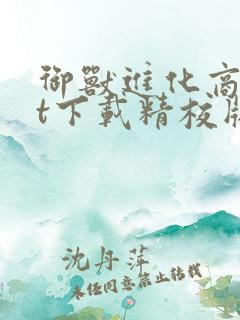 御獸進化商
t下載精校版
沈丹萍
未经同意禁止转载